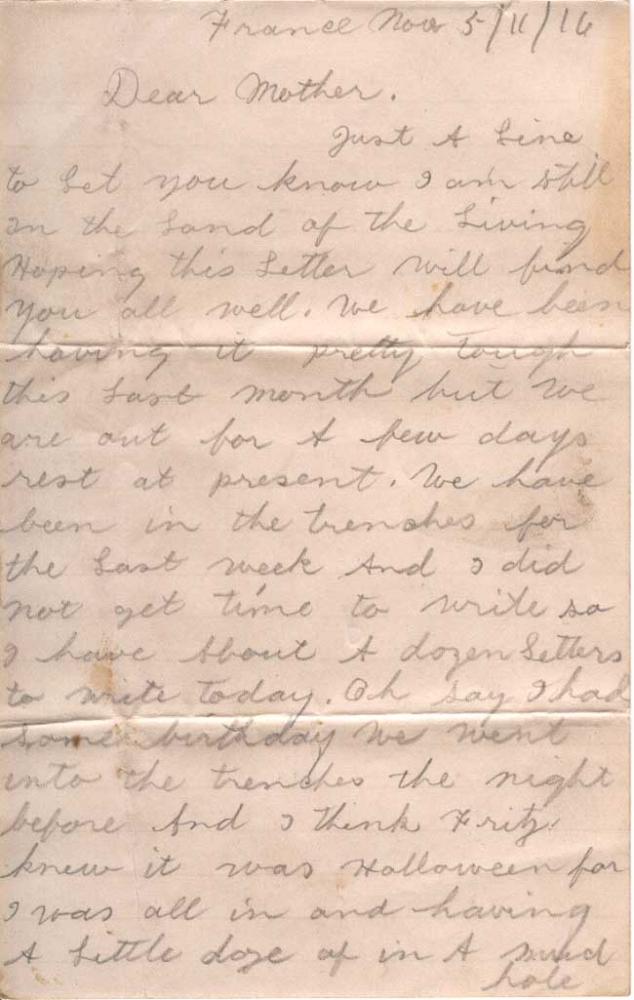 France Nov 5/11/16
Dear Mother.
Just A Line
to Let you know I am still
in the Land of the Living
Hoping this Letter will find
you all well. We have been
having it pretty tough
this Last month but we
are out for A few days
rest at present. We have
been in the trenches for
the Last week And I did
not get time to write so
I have About A dozen Letters
to write today. Oh say I had
some birthday we went
into the trenches the night
before And I think Fritz
knew it was Halloween for
I was all in and having
A Little doze of in A mud
hole